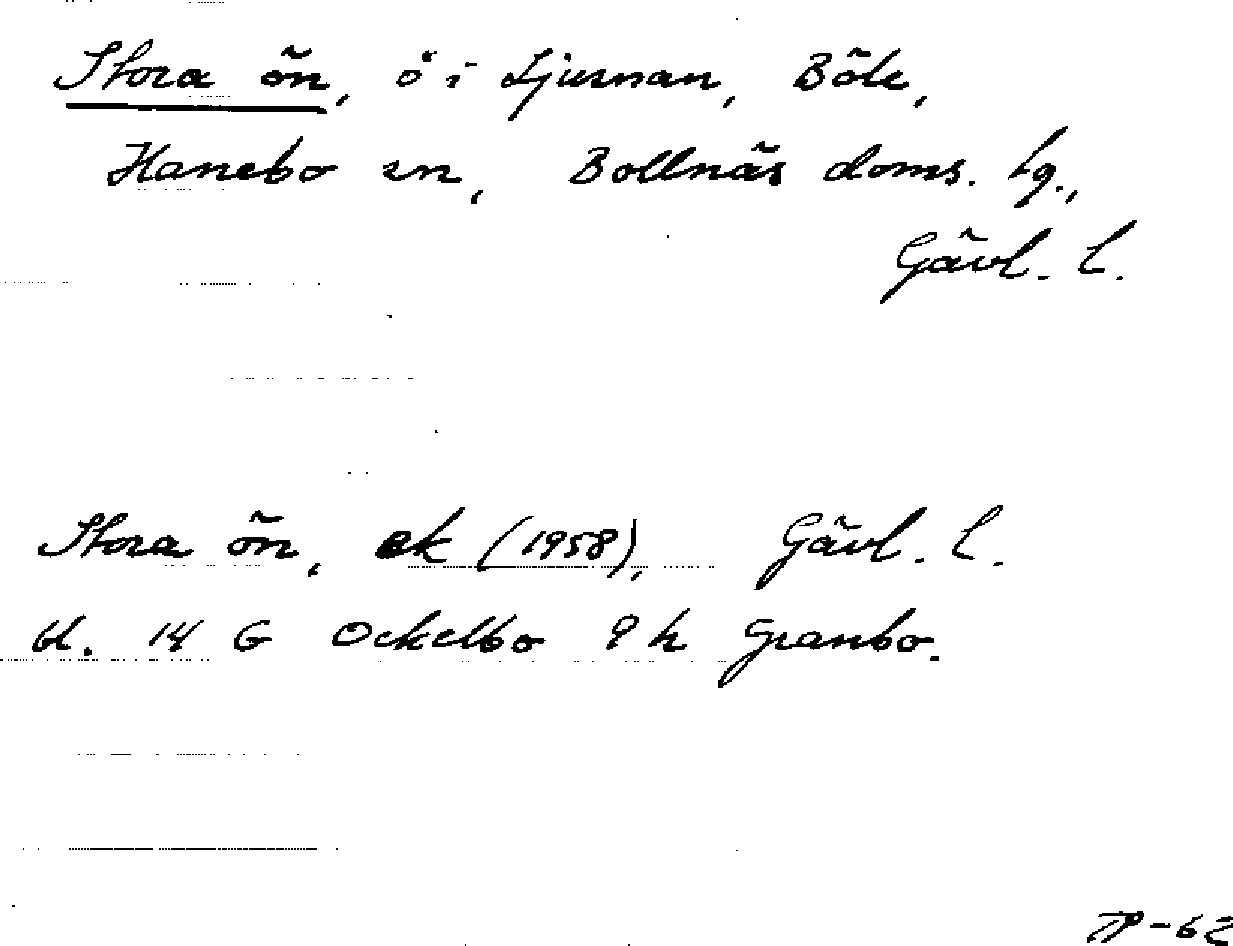 Stora ön, ö i Ljusnan, Böle,
Hanebo sn, Bollnäs doms. tg.,
Gävl. l.
Stora ön, ek (1958), Gävl. l.
bl. 14 G Ockelbo 9 h Granbo.
TP-62